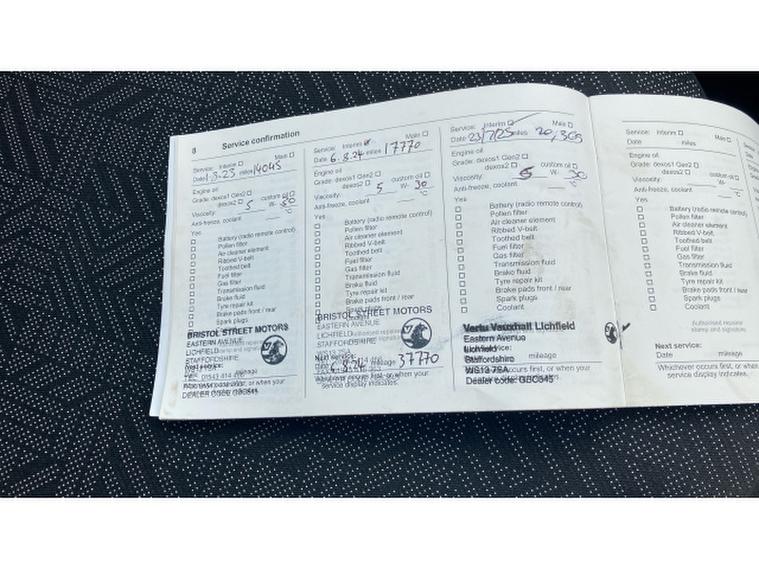 8 Service confirmation
Service: Interim Main
Date 1.3.23 miles 14045
Engine oil
Grade: dexos1 Gen2
dexos2 custom oil
Viscosity: 5 W- 30
Anti-freeze, coolant °C
Yes
Battery (radio remote control)
Pollen filter
Air cleaner element
Ribbed V-belt
Toothed belt
Fuel filter
Gas filter
Transmission fluid
Brake fluid
Tyre repair kit
Brake pads front / rear
Spark plugs
BRISTOL STREET MOTORS
EASTERN AVENUE
LICHFIELD
STAFFORDSHIRE
Next service:
mileage
TEL: 01543 414
Whichever occurs first, or when your
DEALER CODE: GBC645
Service: Interim Main
Date 6.8.24 miles 17770
Engine oil
Grade: dexos1 Gen2
dexos2 custom oil
Viscosity: 5 W- 30
Anti-freeze, coolant °C
Yes
Battery (radio remote control)
Pollen filter
Air cleaner element
Ribbed V-belt
Toothed belt
Fuel filter
Gas filter
Transmission fluid
Brake fluid
Tyre repair kit
Brake pads front / rear
Spark plugs
BRISTOL STREET MOTORS
EASTERN AVENUE
LICHFIELD
STAFFORDSHIRE
Next service:
Date mileage 37770
Whichever occurs first, or when your
service display indicates.
Service: Interim Main
Date 23/7/25 miles 20,309
Engine oil
Grade: dexos1 Gen2
dexos2 custom oil
Viscosity: 5 W- 30
Anti-freeze, coolant °C
Yes
Battery (radio remote control)
Pollen filter
Air cleaner element
Ribbed V-belt
Toothed belt
Fuel filter
Gas filter
Transmission fluid
Brake fluid
Tyre repair kit
Brake pads front / rear
Spark plugs
Coolant
Vertu Vauxhall Lichfield
Eastern Avenue
Lichfield
Staffordshire
mileage
WS13 7SA
occurs first, or when your
Dealer code: GBC645
Service: Interim Main
Date miles
Engine oil
Grade: dexos1 Gen2
dexos2 custom oil
Viscosity: W-
Anti-freeze, coolant °C
Yes
Battery (radio remote control)
Pollen filter
Air cleaner element
Ribbed V-belt
Toothed belt
Fuel filter
Gas filter
Transmission fluid
Brake fluid
Tyre repair kit
Brake pads front / rear
Spark plugs
Coolant
Authorised repairer
stamp and signature
Next service:
Date mileage
Whichever occurs first, or when your
service display indicates.